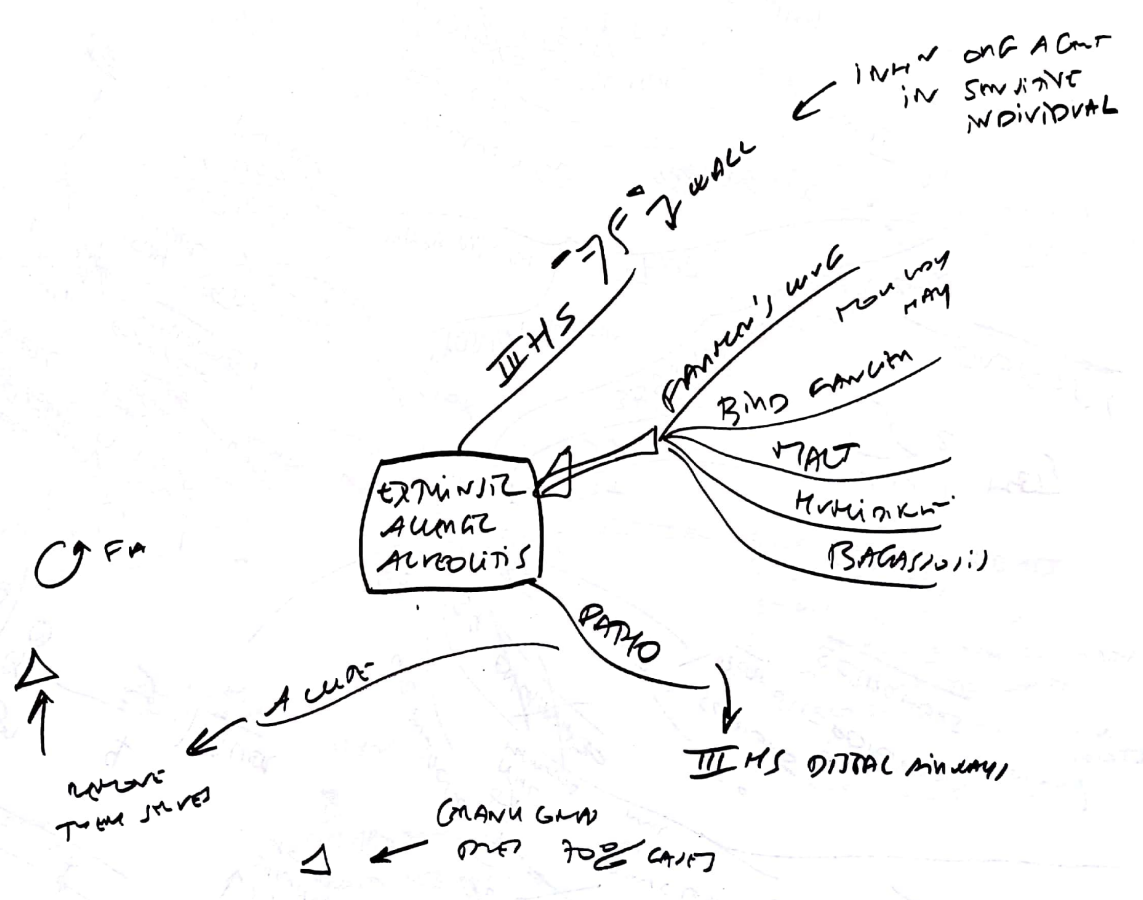 IN ORG AGENT
IN SENSITIVE
INDIVIDUAL
WALL
III HS
FARMER'S LUNG
MOULDY
HAY
BIRD FANCIER
MALT
HUMIDIFIER
BAGASSOSIS
EXTRINSIC
ALLERGIC
ALVEOLITIS
PATHO
III HS DISTAL AIRWAYS
ACUTE
REMOVE
THEMSELVES
GRANULOMAS
70% CASES